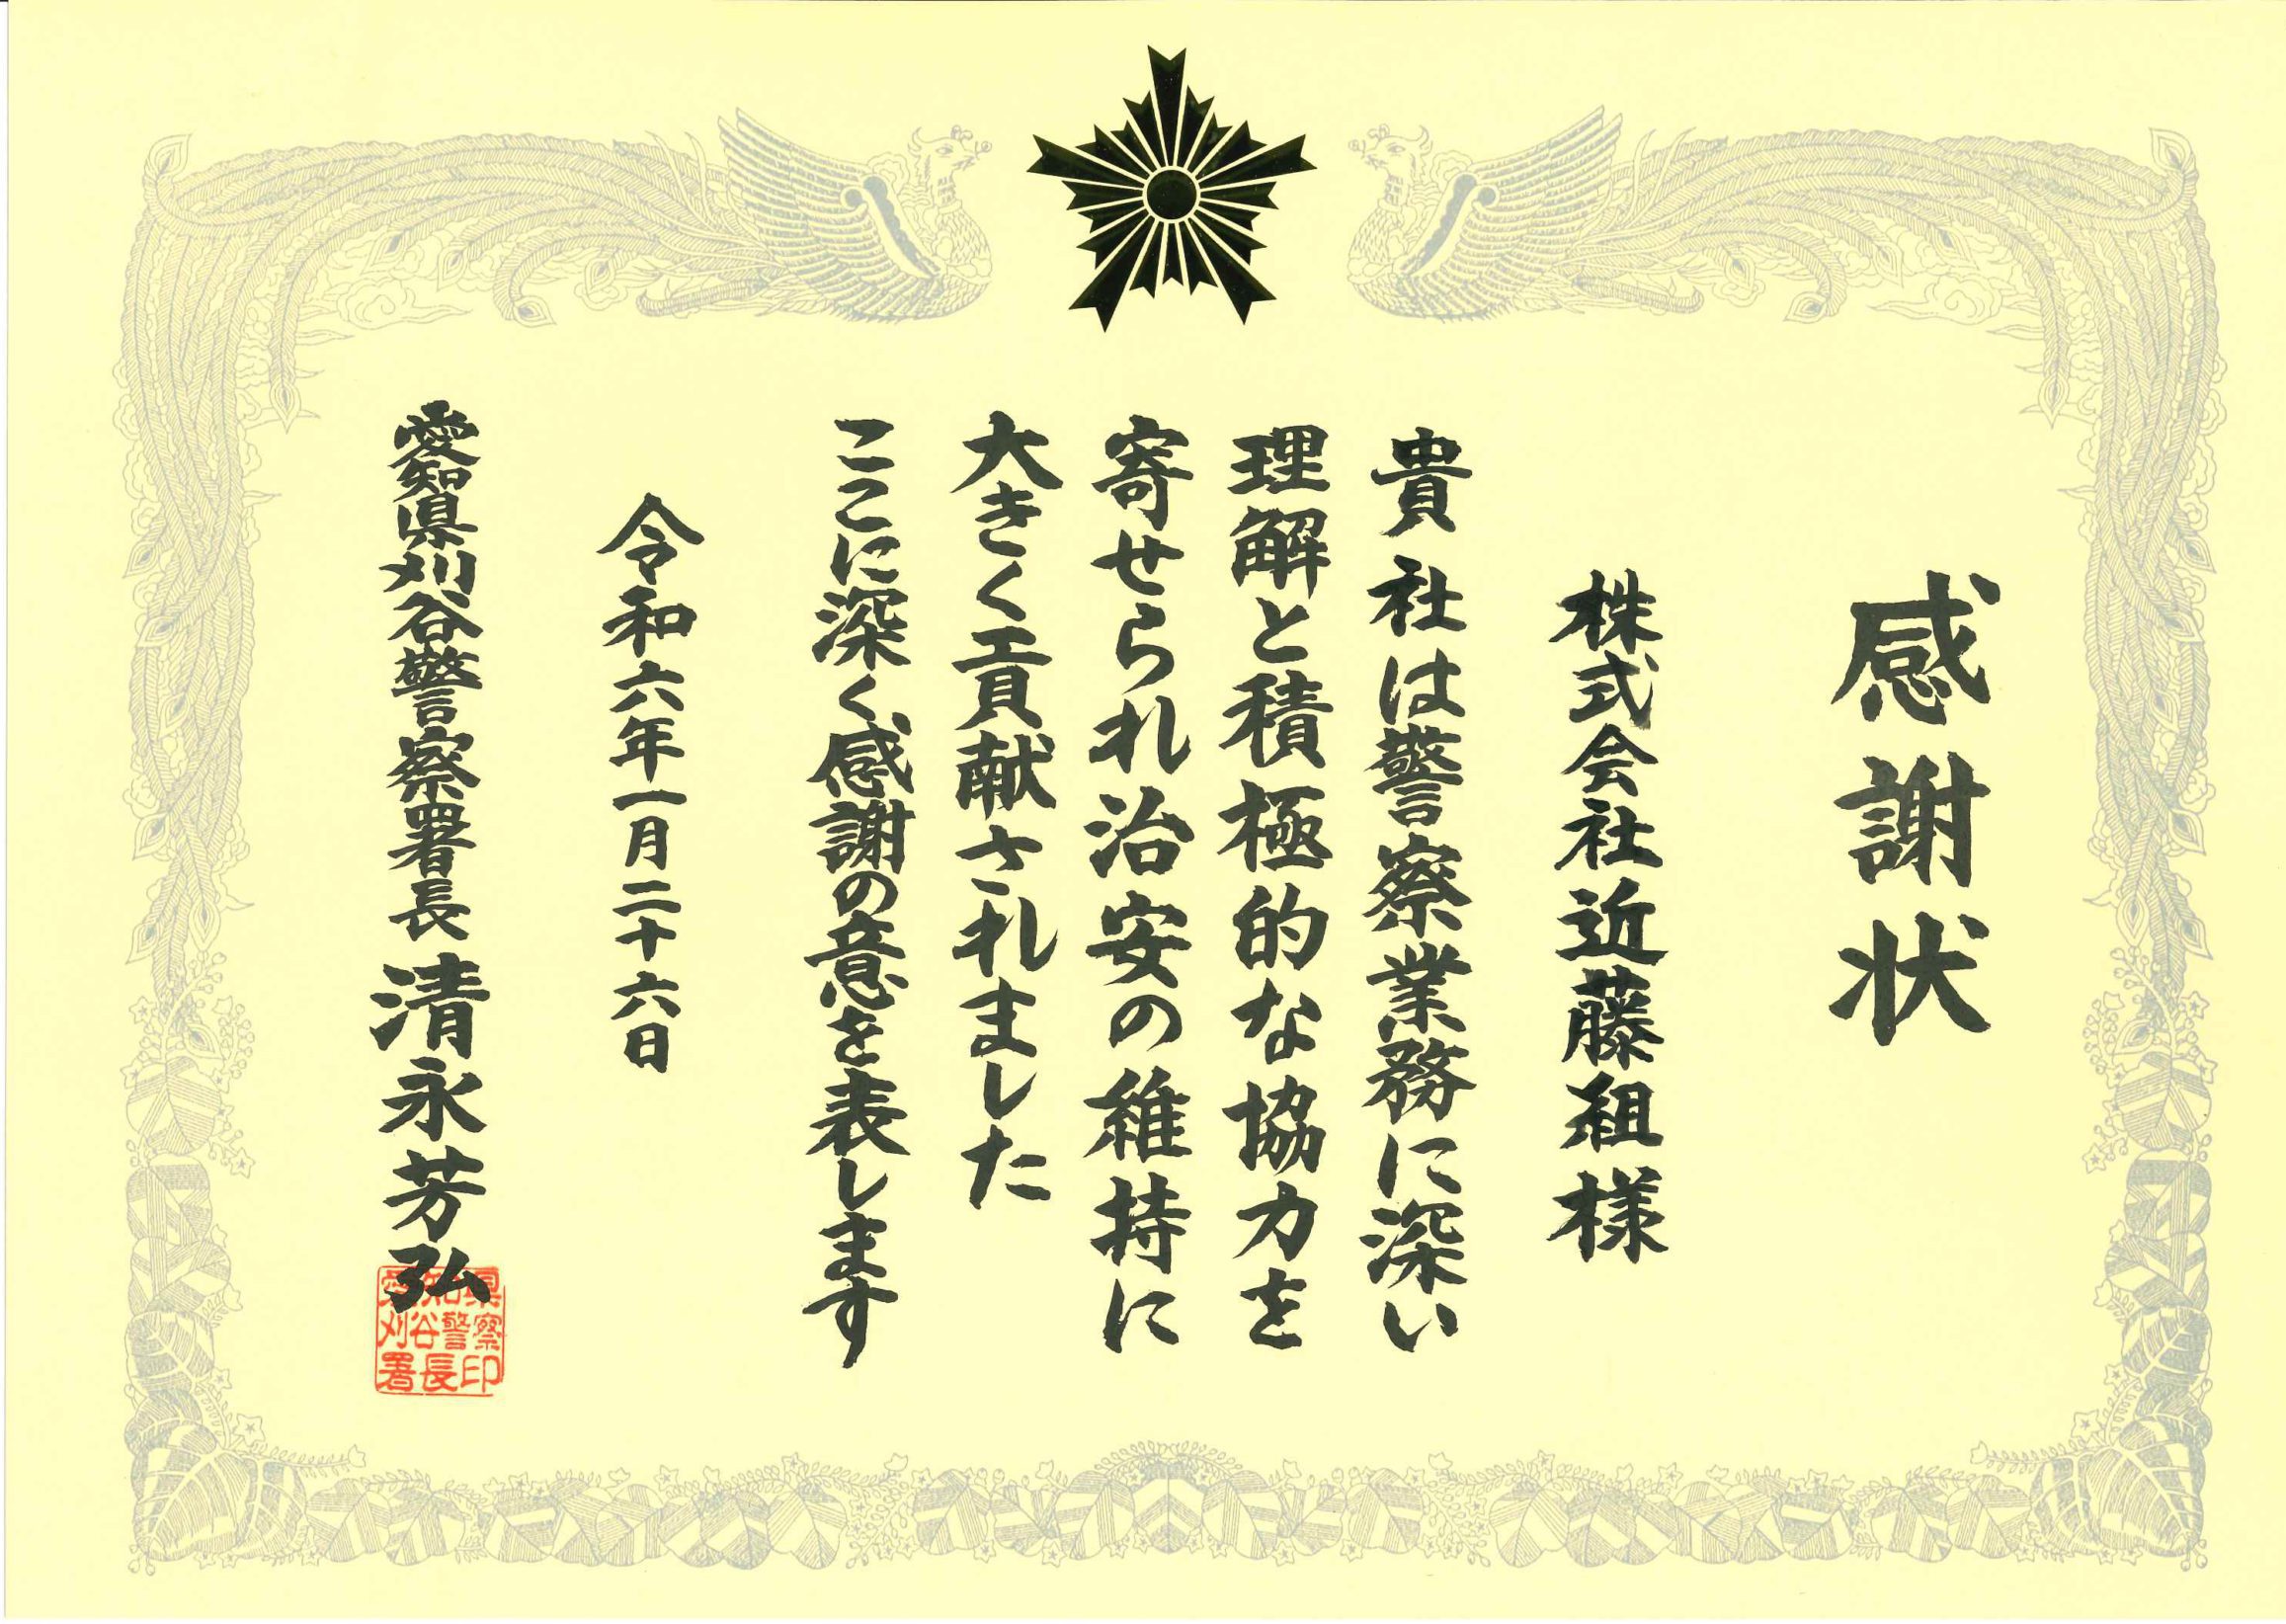 感謝状
株式会社近藤組様
貴社は警察業務に深い
理解と積極的な協力を
寄せられ治安の維持に
大きく貢献されました
ここに深く感謝の意を表します
令和六年一月二十六日
愛知県刈谷警察署長清永芳弘
愛知県
刈谷警察
署長印